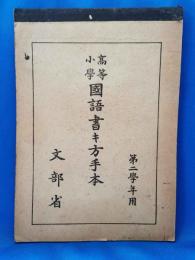 第二學年用
高等小學
國語書キ方手本
文部省